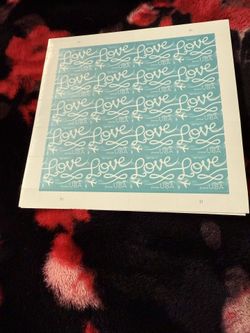 Love Love Love Love
USA USA USA USA
Love Love Love Love
USA USA USA USA
Love Love Love Love
USA USA USA USA
Love Love Love Love
USA USA USA USA
Love Love Love Love
USA USA USA USA